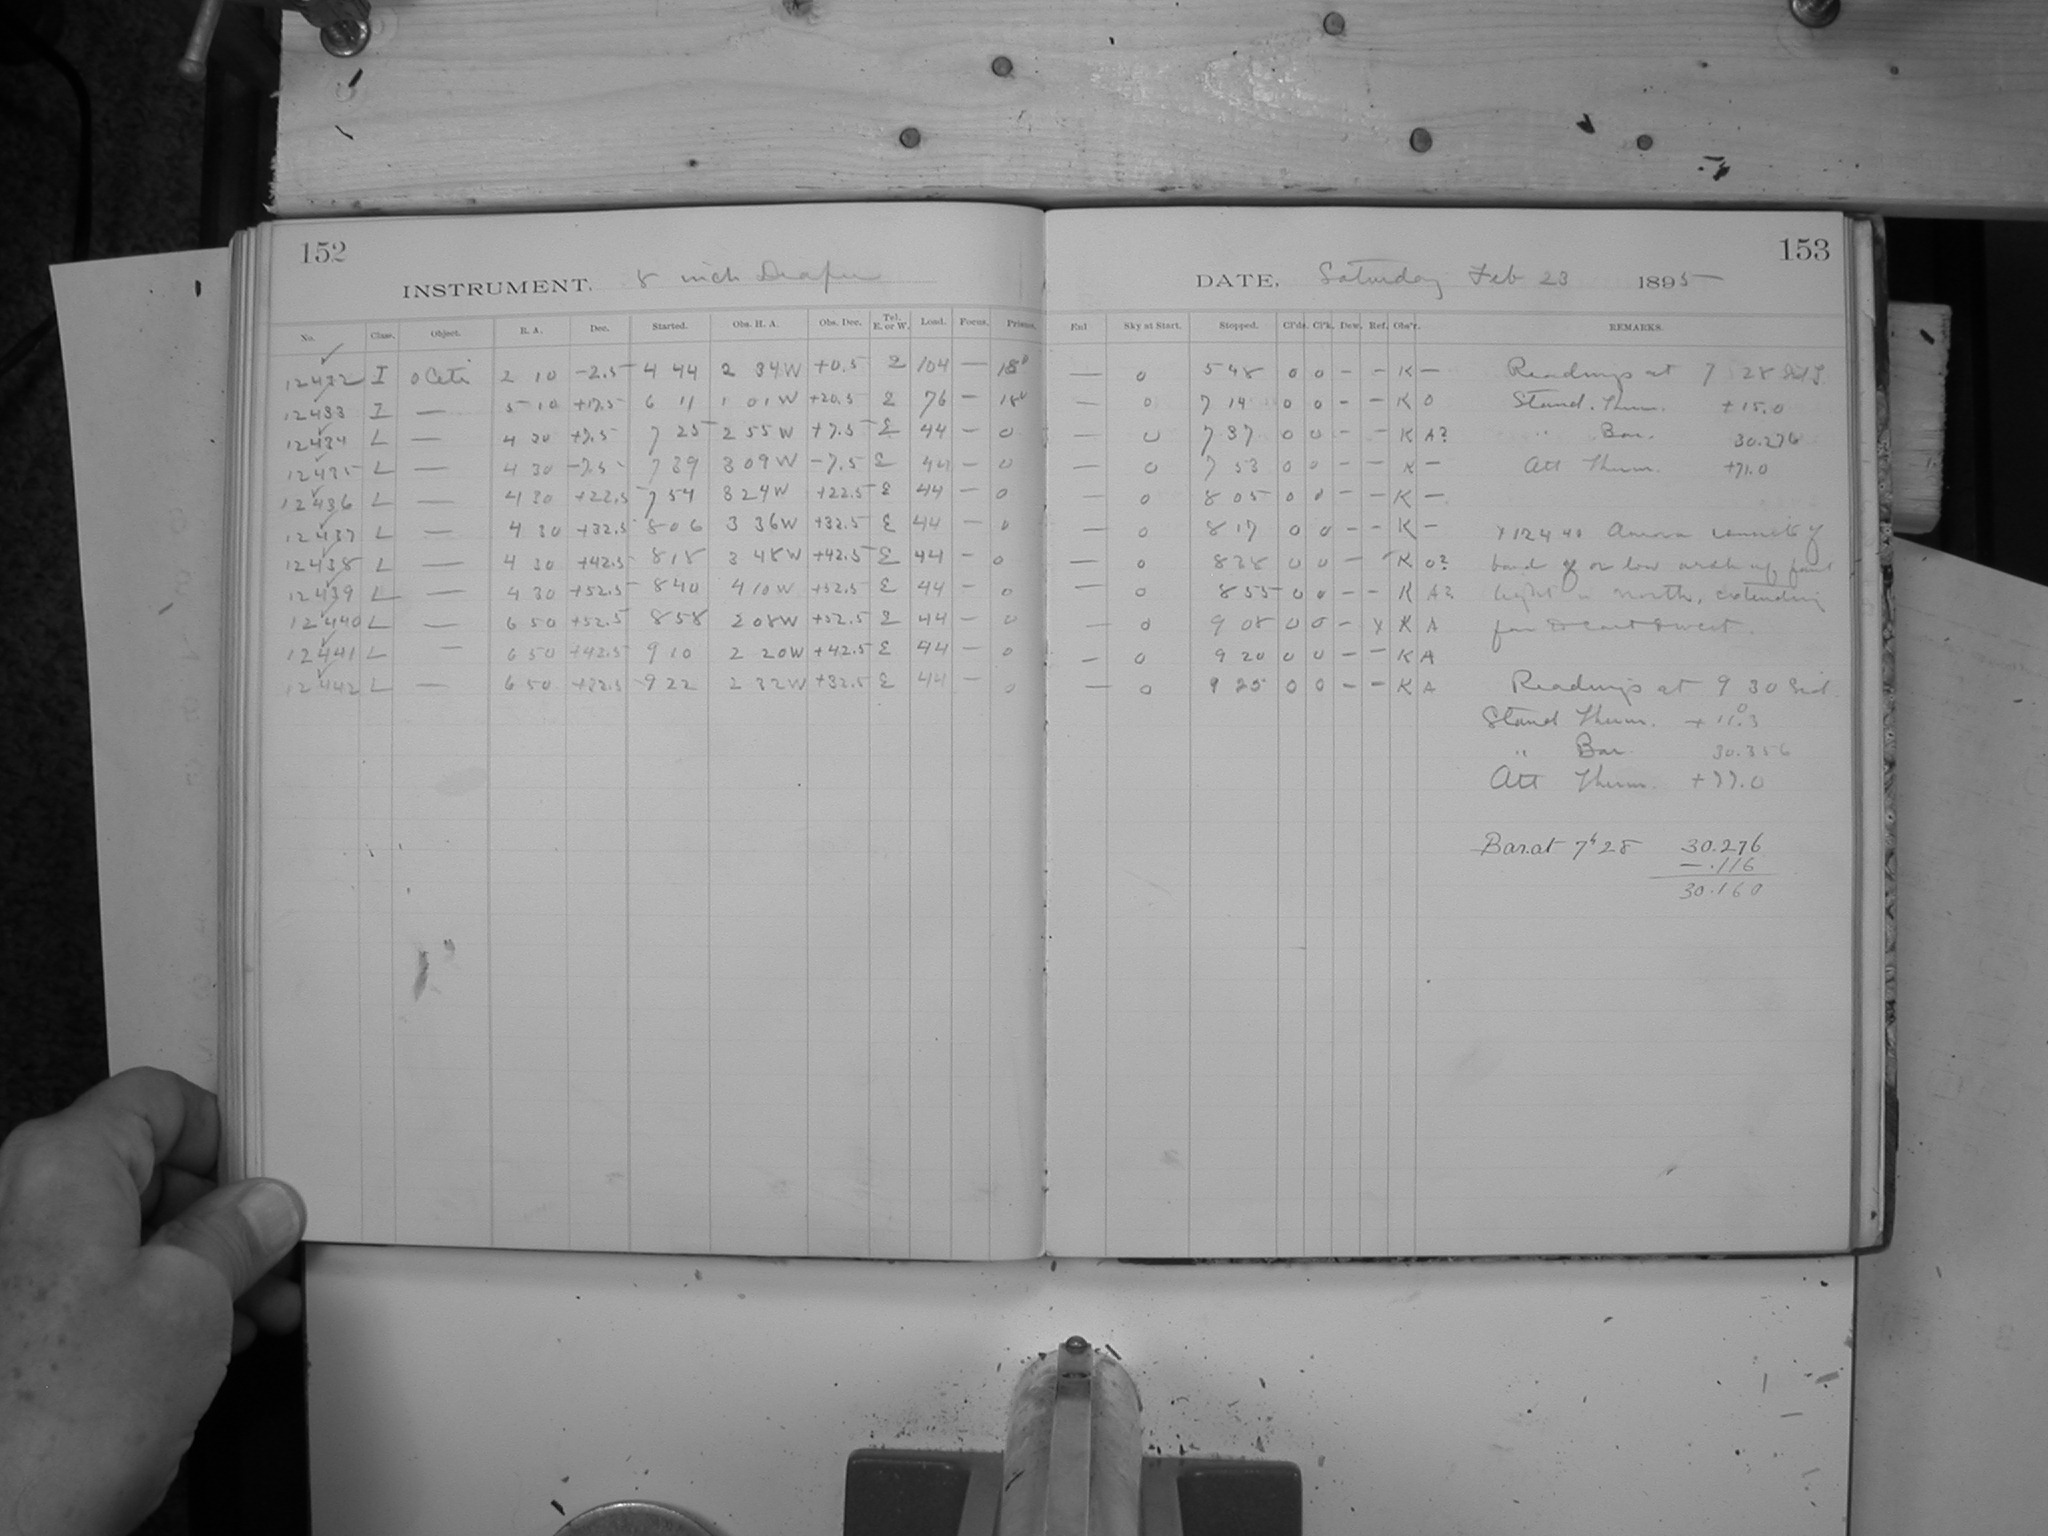 152
INSTRUMENT. 8 inch Draper
No. Class. Object. R. A. Dec. Started. Obs. H. A. Obs. Dec. Tel. E. or W. Load. Focus. Prisms.
12432 I o Ceti 2 10 -2.5 4 44 2 34W +0.5 E 104 — 18°
12433 I — 5 10 +17.5 6 11 1 01W +20.5 E 76 — 18°
12434 L — 4 30 +7.5 7 25 2 55W +7.5 E 44 — 0
12435 L — 4 30 -7.5 7 39 3 09W -7.5 E 44 — 0
12436 L — 4 30 +22.5 7 54 3 24W +22.5 E 44 — 0
12437 L — 4 30 +32.5 8 06 3 36W +32.5 E 44 — 0
12438 L — 4 30 +42.5 8 18 3 48W +42.5 E 44 — 0
12439 L — 4 30 +52.5 8 40 4 10W +52.5 E 44 — 0
12440 L — 6 50 +52.5 8 58 2 08W +52.5 E 44 — 0
12441 L — 6 50 +42.5 9 10 2 20W +42.5 E 44 — 0
12442 L — 6 50 +32.5 9 22 2 32W +32.5 E 44 — 0
153
DATE, Saturday Feb 23 1895
Enl Sky at Start. Stopped. Cl'ds. Cl'k. Dew. Ref. Obs'r. REMARKS.
— 0 5 48 0 0 — — K — Readings at 7 28 Sid T.
— 0 7 14 0 0 — — K 0 Stand. Therm. +15.0
— 0 7 37 0 0 — — K A? " Bar. 30.276
— 0 7 53 0 0 — — K — Att Therm. +71.0
— 0 8 05 0 0 — — K —
— 0 8 17 0 0 — — K — x 12440 Aurora consists of
— 0 8 38 0 0 — — K 0? band of or low arch of faint
— 0 8 55 0 0 — — K A? light in north, extending
— 0 9 08 0 0 — x K A far to east & west.
— 0 9 20 0 0 — — K A
— 0 9 25 0 0 — — K A Readings at 9 30 Sid.
Stand Therm. +11.3
" Bar. 30.356
Att Therm. +77.0
Bar. at 7h 28 30.276
— .116
30.160